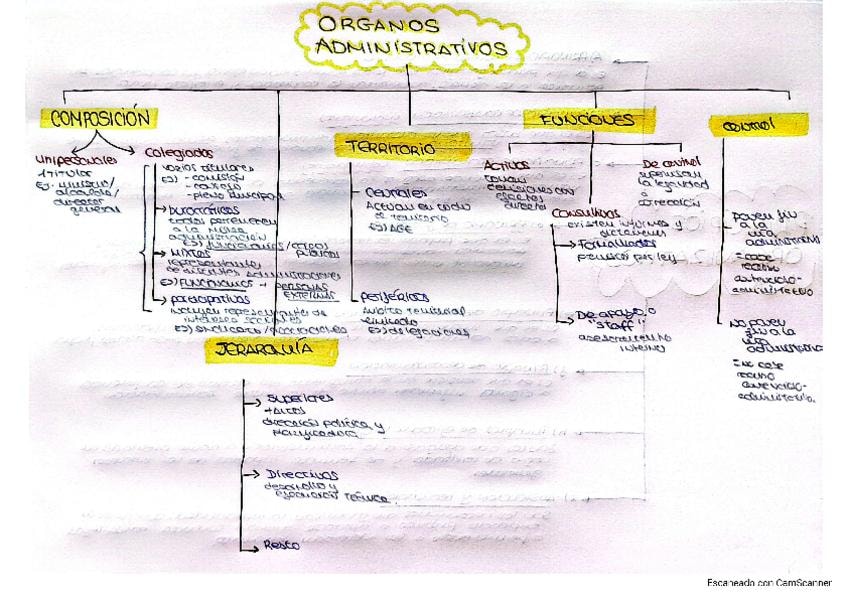 ORGANOS
ADMINISTRATIVOS
COMPOSICIÓN
Unipersonales
1 titular
Ej. ministro/
alcalde/
director
general
Colegiados
varios titulares
Ej) - comisión
- consejo
- pleno municipal
Burocráticos
todos pertenecen
a la misma
administración
Ej) funcionarios/
MIXTOS
representantes
de distintas administraciones
Ej) FUNCIONARIOS + PERSONAS
EXTERNAS
participativos
incluyen representantes de
intereses sociales
Ej) sindicatos/asociaciones
TERRITORIO
Centrales
Actúan en todo
el territorio
Ej) AGE
PERIFÉRICOS
ámbito territorial
limitado
Ej) delegaciones
FUNCIONES
Activos
toman
decisiones con
efectos
directos
CONSULTIVOS
emiten informes y
dictámenes
Formalizados
previstos por ley
De apoyo o
"staff"
asesoramiento
interno
De control
supervisan
la legalidad
o
dirección
CONTROL
Ponen fin
a la
vía
administrativa
= cabe
recurso
contencioso-
administrativo
No ponen
fin a la
vía
administrativa
= no cabe
recurso
contencioso-
administrativo.
JERARQUÍA
Superiores
+ altos
dirección política y
planificadora
Directivos
desarrollo y
ejecución técnica
Resto
Escaneado con CamScanner